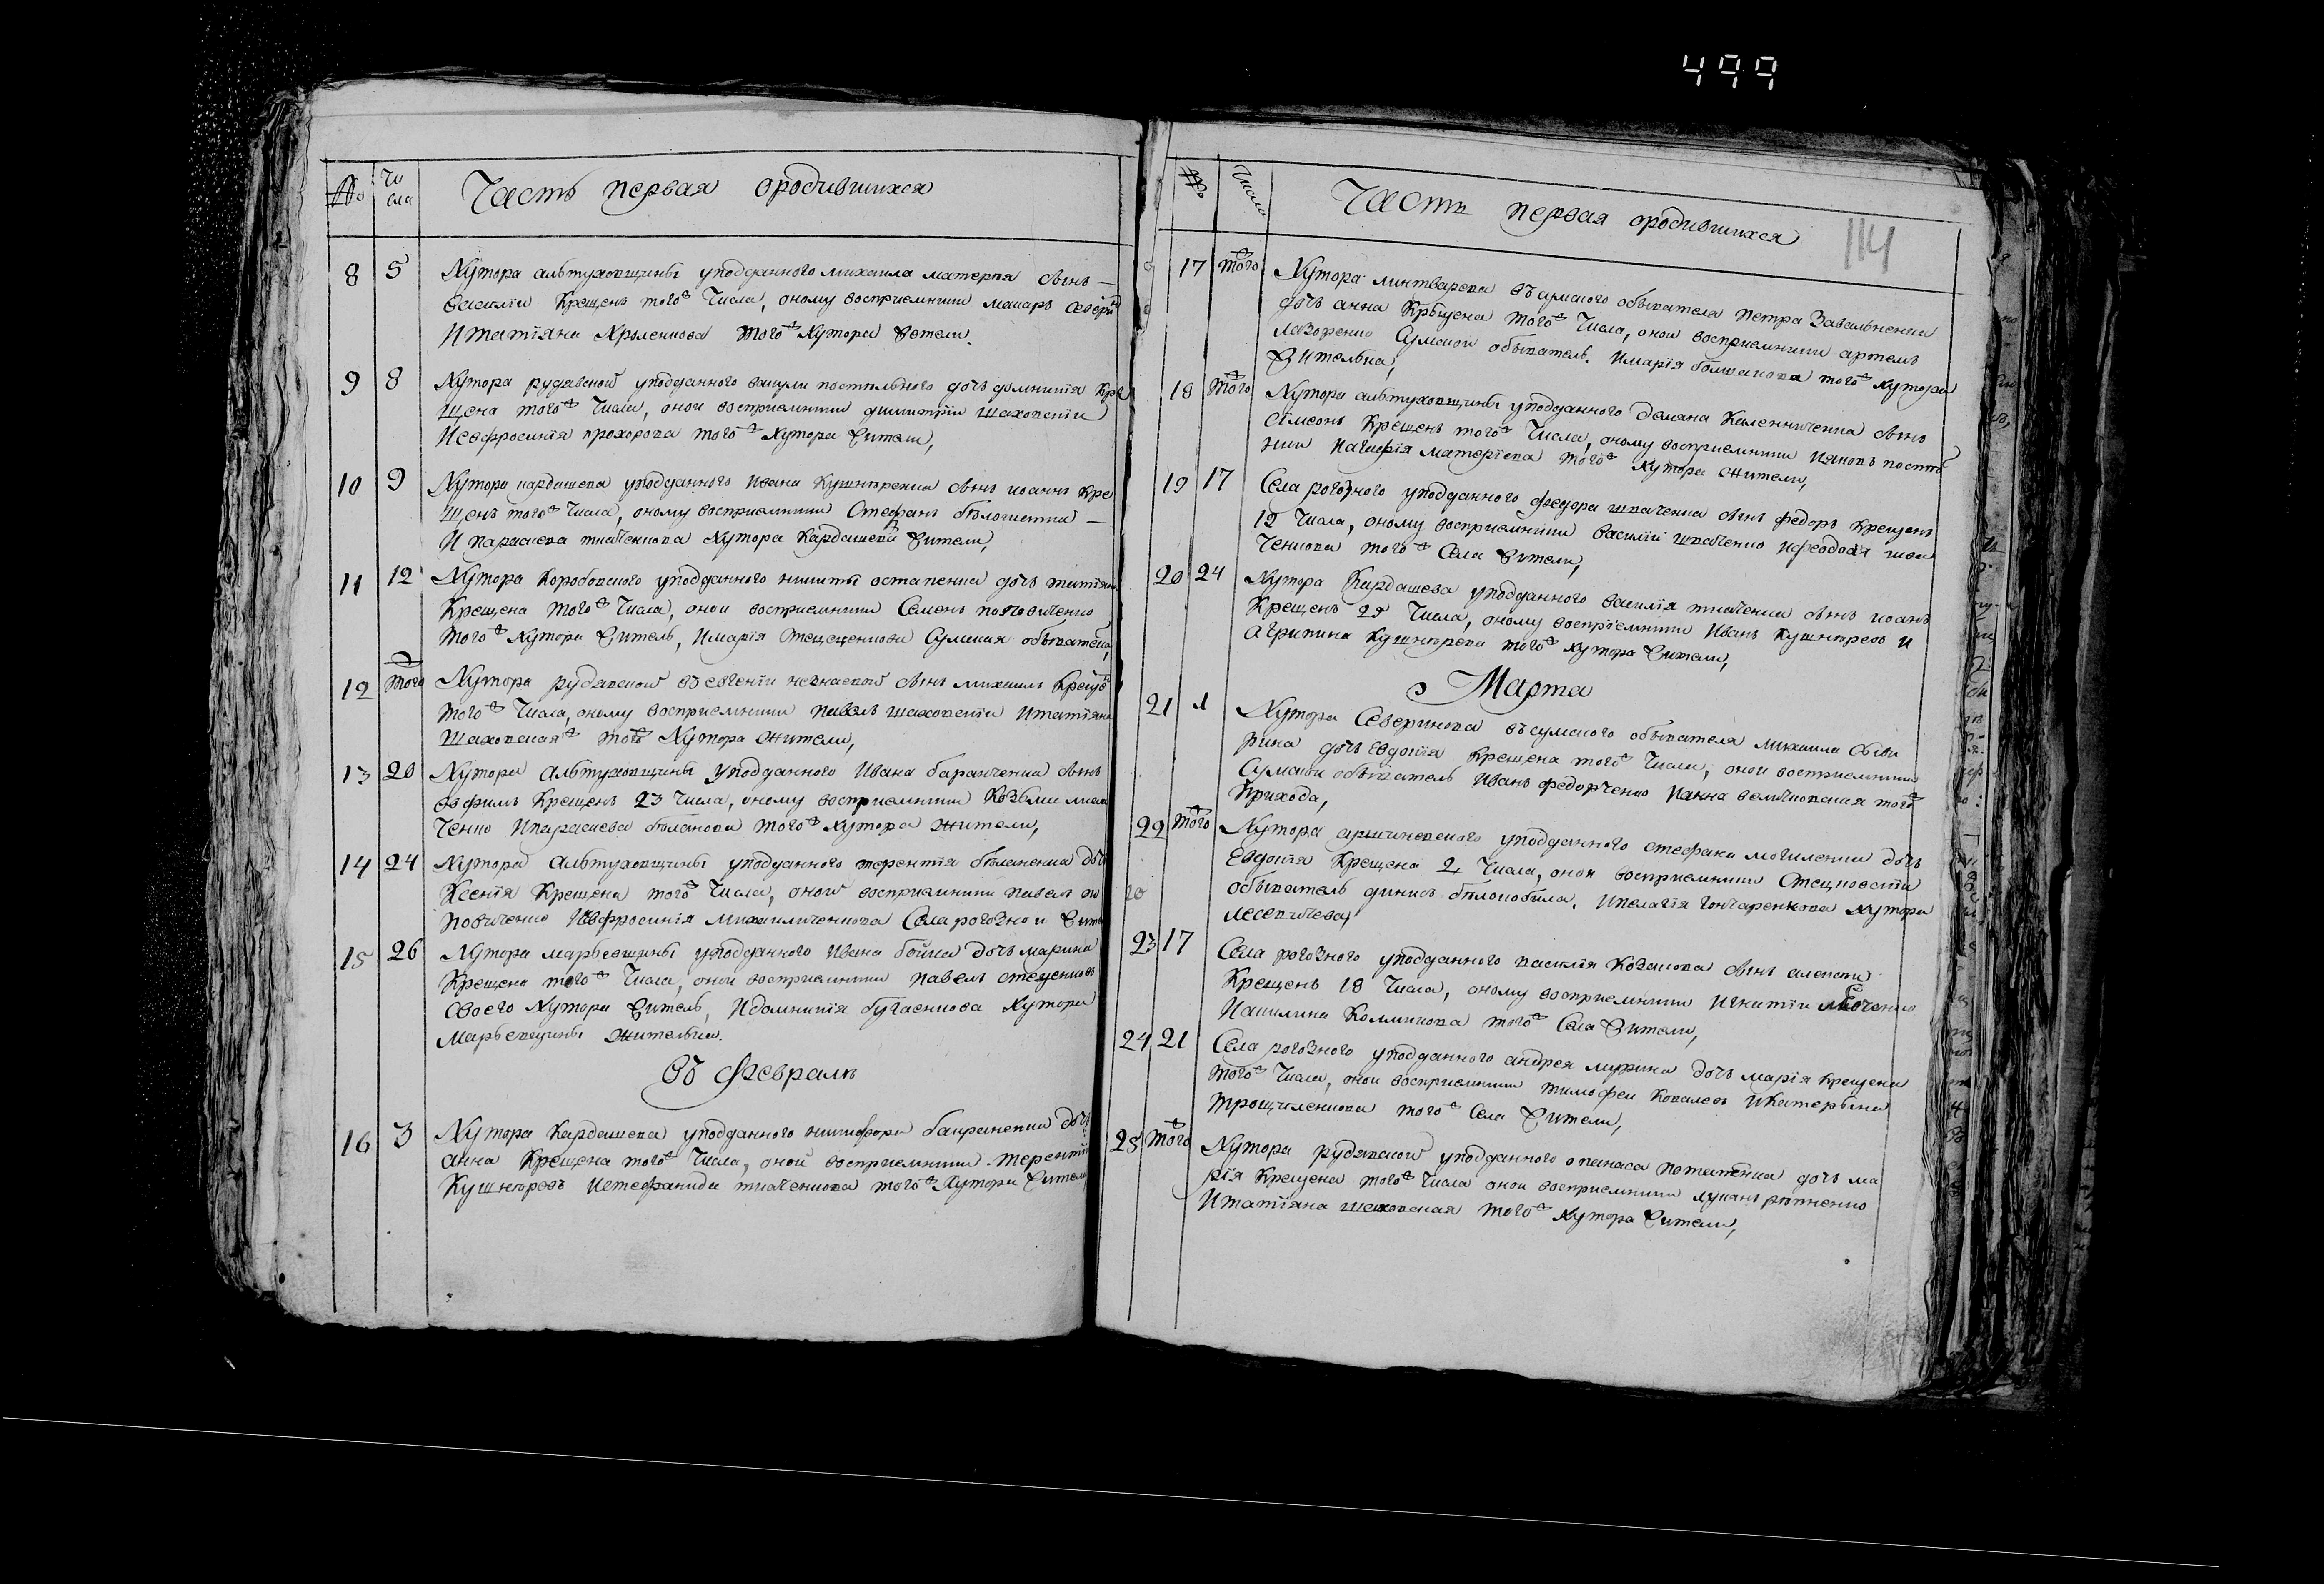 499
№ Чи
сла
Часть первая ородившихся
8 5 Хутора алтуховщины уподданного михаила матерпа сынъ —
василий Крещенъ того ж Числа, оному восприемники макаръ
И татіяна Хруленкова того ж Хутора жители.
9 8 Хутора рудавской уподданного вакули постильного дочь домникія Кре
щена того ж Числа, оной восприемники димитрій шаховскій
И евфросинія прохорова того ж Хутора жители,
10 9 Хутора кардашева уподданного Ивана Кушнѣренка сынъ иоаннъ Кре
щенъ того ж Числа, оному восприемники Стефанъ —
И параскева ткаченкова Хутора Кардашева жители,
11 12 Хутора Коробовского уподданного никиты остапенка дочь татіяна
Крещена того ж Числа, оной восприемники Семенъ поповиченко
того ж Хутора житель, И марія Стещенкова Сумская обывателка,
12 того ж Хутора рудавской михаилъ Креще
того ж Числа, оному восприемники павелъ шаховскій И татіяна
шаховская того ж Хутора жители,
13 20 Хутора Алтуховщины уподданного Ивана баранченка сынъ
евфимъ Крещенъ 23 Числа, оному восприемники Козма
ченко И параскева бѣланова того ж Хутора жители,
14 24 Хутора Алтуховщины уподданного терентія бѣланенка дочь
Ксенія Крещена того ж Числа, оной восприемники павелъ по
повиченко И евфросинія михаиличенкова Села рогозной жит
15 26 Хутора марьевщины уподданного Ивана бойка дочь марина
Крещена того ж Числа, оной восприемники павелъ стеценковъ
Своего Хутора житель, И домникія бугаенкова Хутора
Марьевщины жителька.
Въ Февралѣ
16 3 Хутора Кардашева уподданного никифора дочь
анна Крещена того ж Числа, оной восприемники терентій
Кушнѣревъ И стефанида ткаченкова того ж Хутора жители
№ Числа
Часть первая ородившихся
114
17 того ж Хутора линтварева въ сумского обывателя петра Завальненка
дочь анна Крещена того ж Числа, оной восприемники артемъ
лазоренко Сумской обыватель. И марія болшакова того ж Хутора
жителька,
18 того ж Хутора алтуховщины уподданного Демяна Каленниченка сынъ
сімеонъ Крещенъ того ж Числа, оному восприемники Ияковъ постол
ний И агафія матеріева того ж Хутора жители,
19 17 Села рогозного уподданного федора шваченка сынъ федоръ Крещенъ
19 Числа, оному восприемники василій шваченко И феодосія шва
ченкова того ж Села жители,
20 24 Хутора Кардашева уподданного василія ткаченка сынъ иоанъ
Крещенъ 25 Числа, оному восприемники Иванъ Кушнѣревъ И
агрипина Кушнѣрева того ж Хутора жители,
Марта
21 1 Хутора Северинова въ сумского обывателя михаила сѣве
рина дочь Евдокія Крещена того ж Числа, оной восприемники
Сумской обыватель Иванъ федорченко И анна величковская того ж
Прихода,
22 того ж Хутора аршиневского уподданного стефана могиленка дочь
Евдокія Крещена 2 Числа, оной восприемники Стецковскій
обыватель динисъ бѣлокобила. И пелагія Гончаренкова Хутора
лесевичева,
23 17 Села рогозного уподданного василія Козакова сынъ алексей
Крещенъ 18 Числа, оному восприемники Игнатій
И акилина Колмикова того ж Села жители,
24 21 Села рогозного уподданного андрея мурина дочь марія Крещена
того ж Числа, оной восприемники тимофей Ковалевъ И Катерына
трощиленкова того ж Села жители,
25 того ж Хутора рудавской уподданного опанаса потапенка дочь ма
рія Крещена того ж Числа оной восприемники луканъ рѣпченко
И татіяна шаховская того ж Хутора жители,